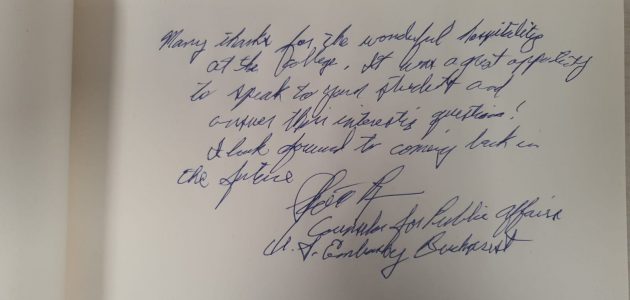 Many thanks for the wonderful hospitality
at the College. It was a great opportunity
to speak to your students and
answer their interesting questions!
I look forward to coming back in
the future
Counselor for Public Affairs
U.S. Embassy Bucharest